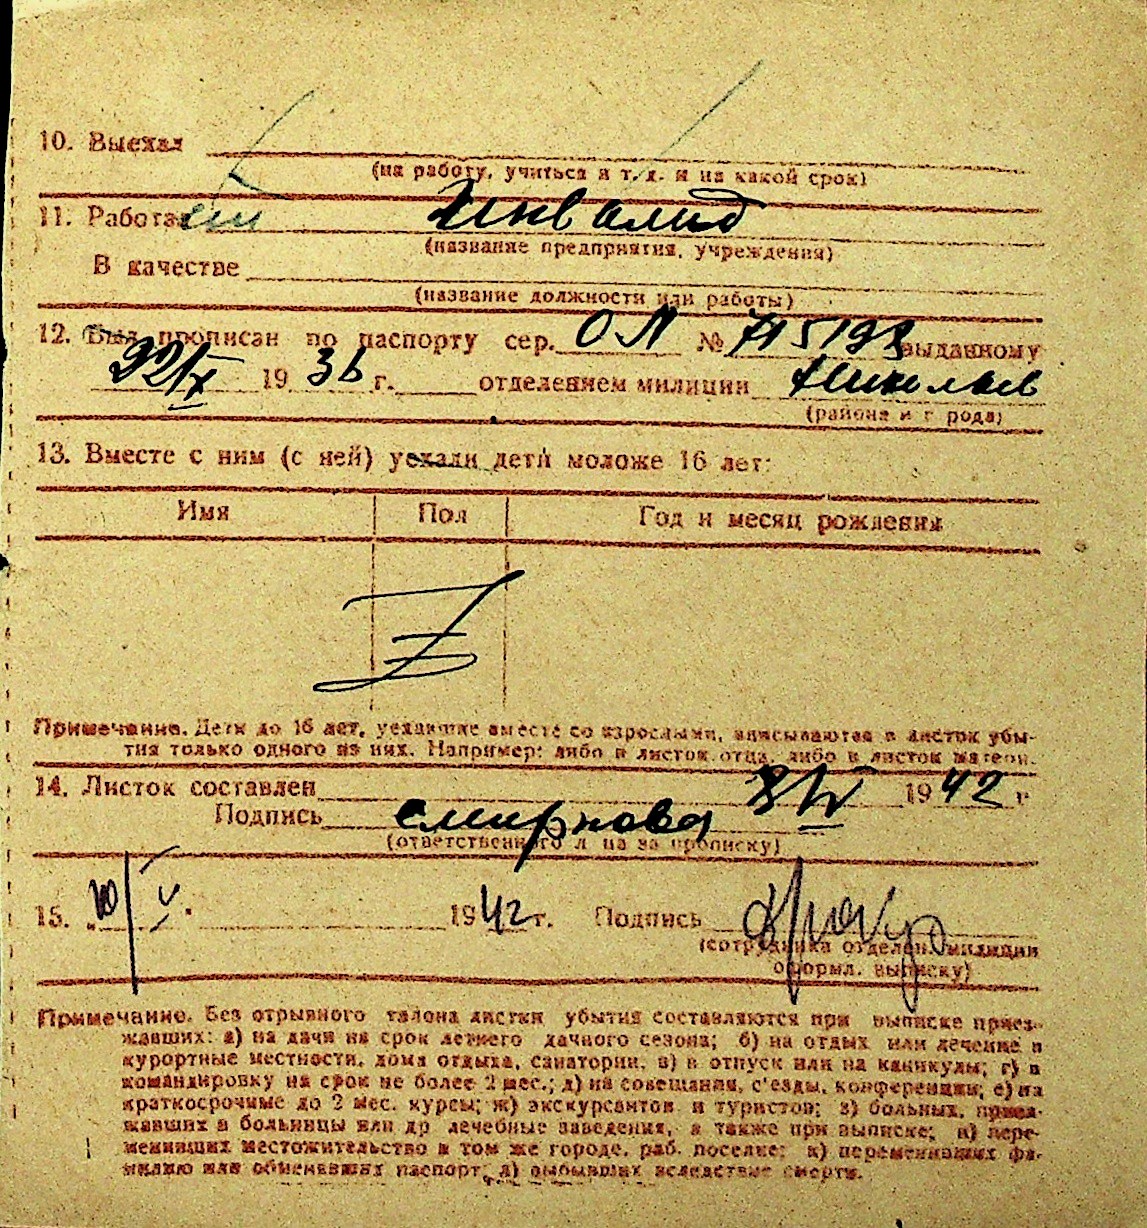 10. Выехал
(на работу, учиться и т. д. и на какой срок)
11. Работал Инвалид
(название предприятия, учреждения)
В качестве
(название должности или работы)
12. Был прописан по паспорту сер. ОЛ № 715193 выданному
22/X 1936 г. отделением милиции Николаев
(района и города)
13. Вместе с ним (с ней) уехали дети моложе 16 лет:
Имя Пол Год и месяц рождения
Z
Примечание. Дети до 16 лет, уехавшие вместе со взрослыми, вписываются в листок убы-
тия только одного из них. Например: либо в листок отца, либо в листок матери.
14. Листок составлен 8/IV 1942 г
Подпись Смирнова
(ответственного лица за прописку)
15. „10/V" 1942 г. Подпись
(сотрудника отделен. милиции
оформл. выписку)
Примечание. Без отрывного талона листки убытия составляются при выписке приез-
жавших: а) на дачи на срок летнего дачного сезона; б) на отдых или лечение в
курортные местности, дома отдыха, санатории, в) в отпуск или на каникулы; г) в
командировку на срок не более 2 мес.; д) на совещания, с'езды, конференции; е) на
краткосрочные до 2 мес. курсы; ж) экскурсантов и туристов; з) больных, приез-
жавших в больницы или др лечебные заведения, а также при выписке; и) пере-
менивших местожительство в том же городе, раб. поселке; к) переменивших фа-
милию или обменявших паспорт, л) выбывших вследствие смерти.